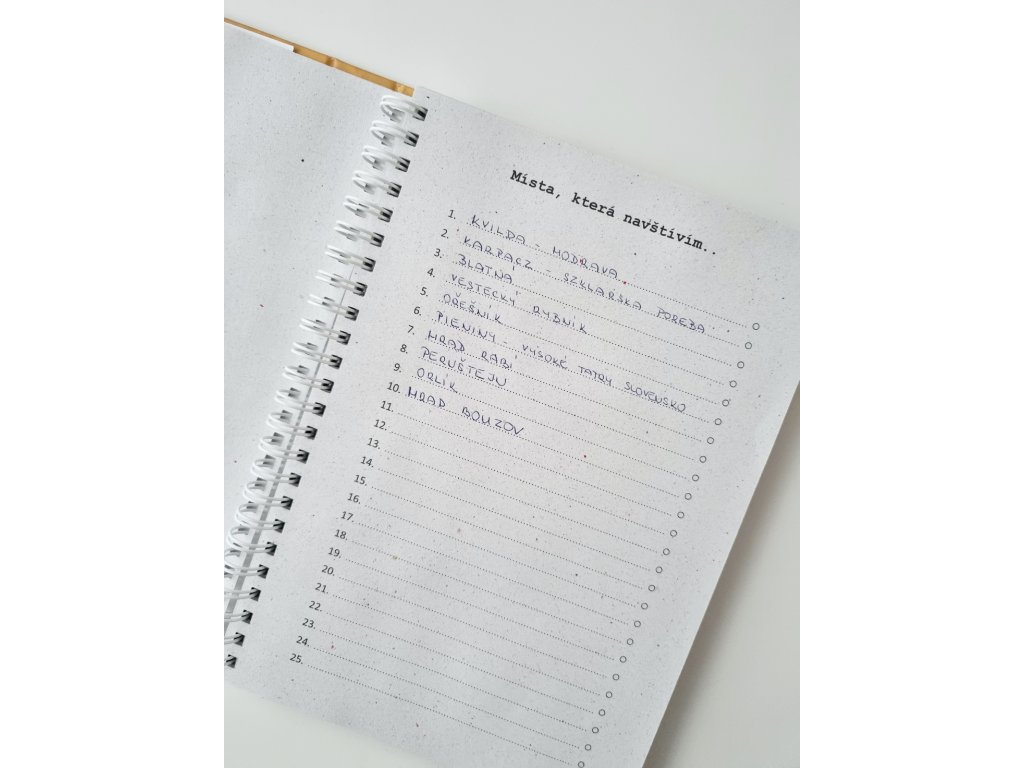 Místa, která navštívím..
1. KVILDA - MODRAVA
2. KARPACZ - SZKLARSKA POREBA
3. BLATNÁ
4. VESTECKÝ RYBNÍK
5. OŘEŠNÍK
6. PIENINY - VYSOKÉ TATRY SLOVENSKO
7. HRAD RABÍ
8. PERUŠTEJU
9. ORLÍK
10. HRAD BOUZOV
11.
12.
13.
14.
15.
16.
17.
18.
19.
20.
21.
22.
23.
24.
25.